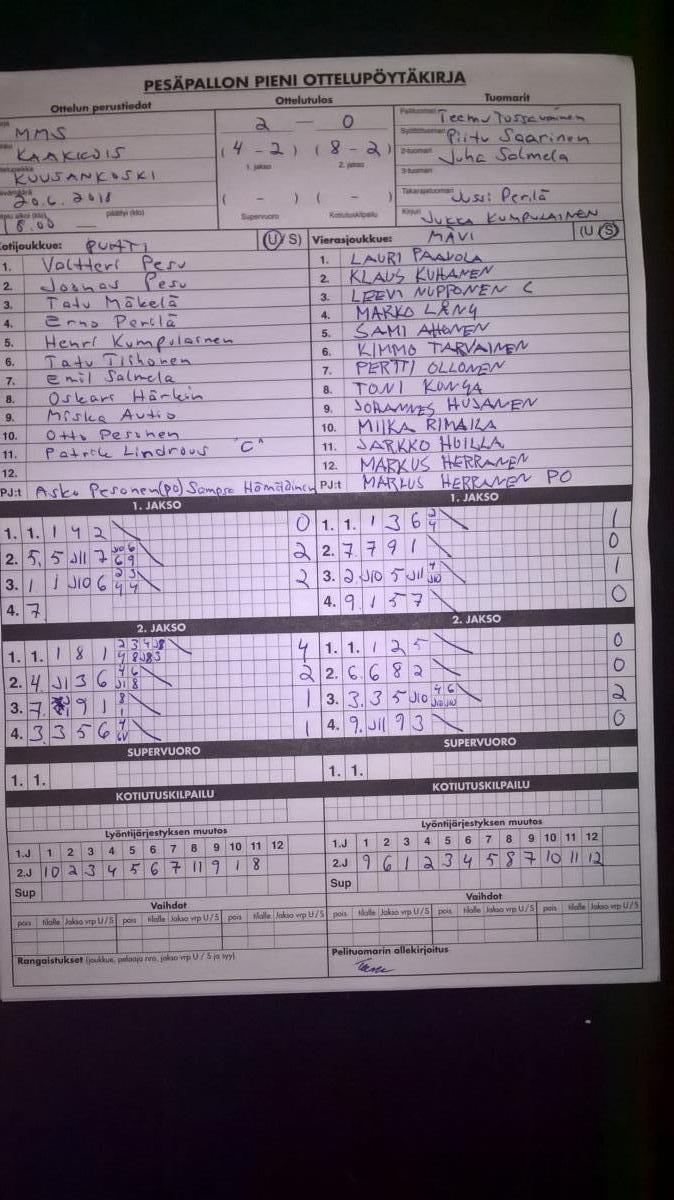 PESÄPALLON PIENI OTTELUPÖYTÄKIRJA
Ottelun perustiedot Ottelutulos Tuomarit
MMS
KAAKKOIS
KUUSANKOSKI
20.6.2018
18.00 päättyi (klo)
2 — 0
(4 - 2) (8 - 2)
1. jakso 2. jakso
( - ) ( - )
Supervuoro Kotiutuskilpailu
Pelituomari Teemu
Syöttötuomari Piitu Saarinen
2-tuomari Juha Salmela
3-tuomari
Takarajatuomari Jussi Perilä
Kirjuri JUKKA KUMPULAINEN
Kotijoukkue: PUHTI (U/S)
1. Valtteri Pesu
2. Joonas Pesu
3. Tatu Mäkelä
4. Erno Perilä
5. Henri Kumpulainen
6. Tatu Tiihonen
7. Emil Salmela
8. Oskari Härkin
9. Miska Autio
10. Otto Pesonen
11. Patrik Lindroos "C"
12.
PJ:t Asko Pesonen (PO) Sampsa Hämäläinen
Vierasjoukkue: MÄVI (U/S)
1. LAURI PAAJOLA
2. KLAUS KUHANEN
3. LEEVI NUPPONEN C
4. MARKO LÅNG
5. SAMI AHONEN
6. KIMMO TARVAINEN
7. PERTTI OLLONEN
8. TONI KONGA
9. JOHANNES HUJANEN
10. MIIKA RIMAILA
11. JARKKO HUILLA
12. MARKUS HERRANEN
PJ:t MARKUS HERRANEN PO
1. JAKSO
1. 1. 1 4 2 0
2. 5. 5 J11 7 J10 6 6 9 2
3. 1 1 J10 6 2 3 4 4 2
4. 7
2. JAKSO
1. 1. 1 8 1 2 3 4 J8 4 8 J8 3 4
2. 4. J1 3 6 4 6 J1 8 2
3. 7. 9 1 8 1 1
4. 3. 3 5 6 4 1
SUPERVUORO
1. 1.
KOTIUTUSKILPAILU
Lyöntijärjestyksen muutos
1.J 1 2 3 4 5 6 7 8 9 10 11 12
2.J 10 2 3 4 5 6 7 11 9 1 8
Sup
Vaihdot
pois tilalle Jakso vrp U/S pois tilalle Jakso vrp U/S pois tilalle Jakso vrp U/S
Rangaistukset (joukkue, pelaaja nro, jakso vrp U / S ja syy)
1. JAKSO
1. 1. 1 3 6 2 4 1
2. 7. 7 9 1 0
3. 2. J10 5 J11 4 J10 1
4. 9. 1 5 7 0
2. JAKSO
1. 1. 1 2 5 0
2. 6. 6 8 2 0
3. 3. 3 5 J10 4 6 J10 J10 2
4. 9. J11 9 3 0
SUPERVUORO
1. 1.
KOTIUTUSKILPAILU
Lyöntijärjestyksen muutos
1.J 1 2 3 4 5 6 7 8 9 10 11 12
2.J 9 6 1 2 3 4 5 8 7 10 11 12
Sup
Vaihdot
pois tilalle Jakso vrp U/S pois tilalle Jakso vrp U/S pois tilalle Jakso vrp U/S
Pelituomarin allekirjoitus